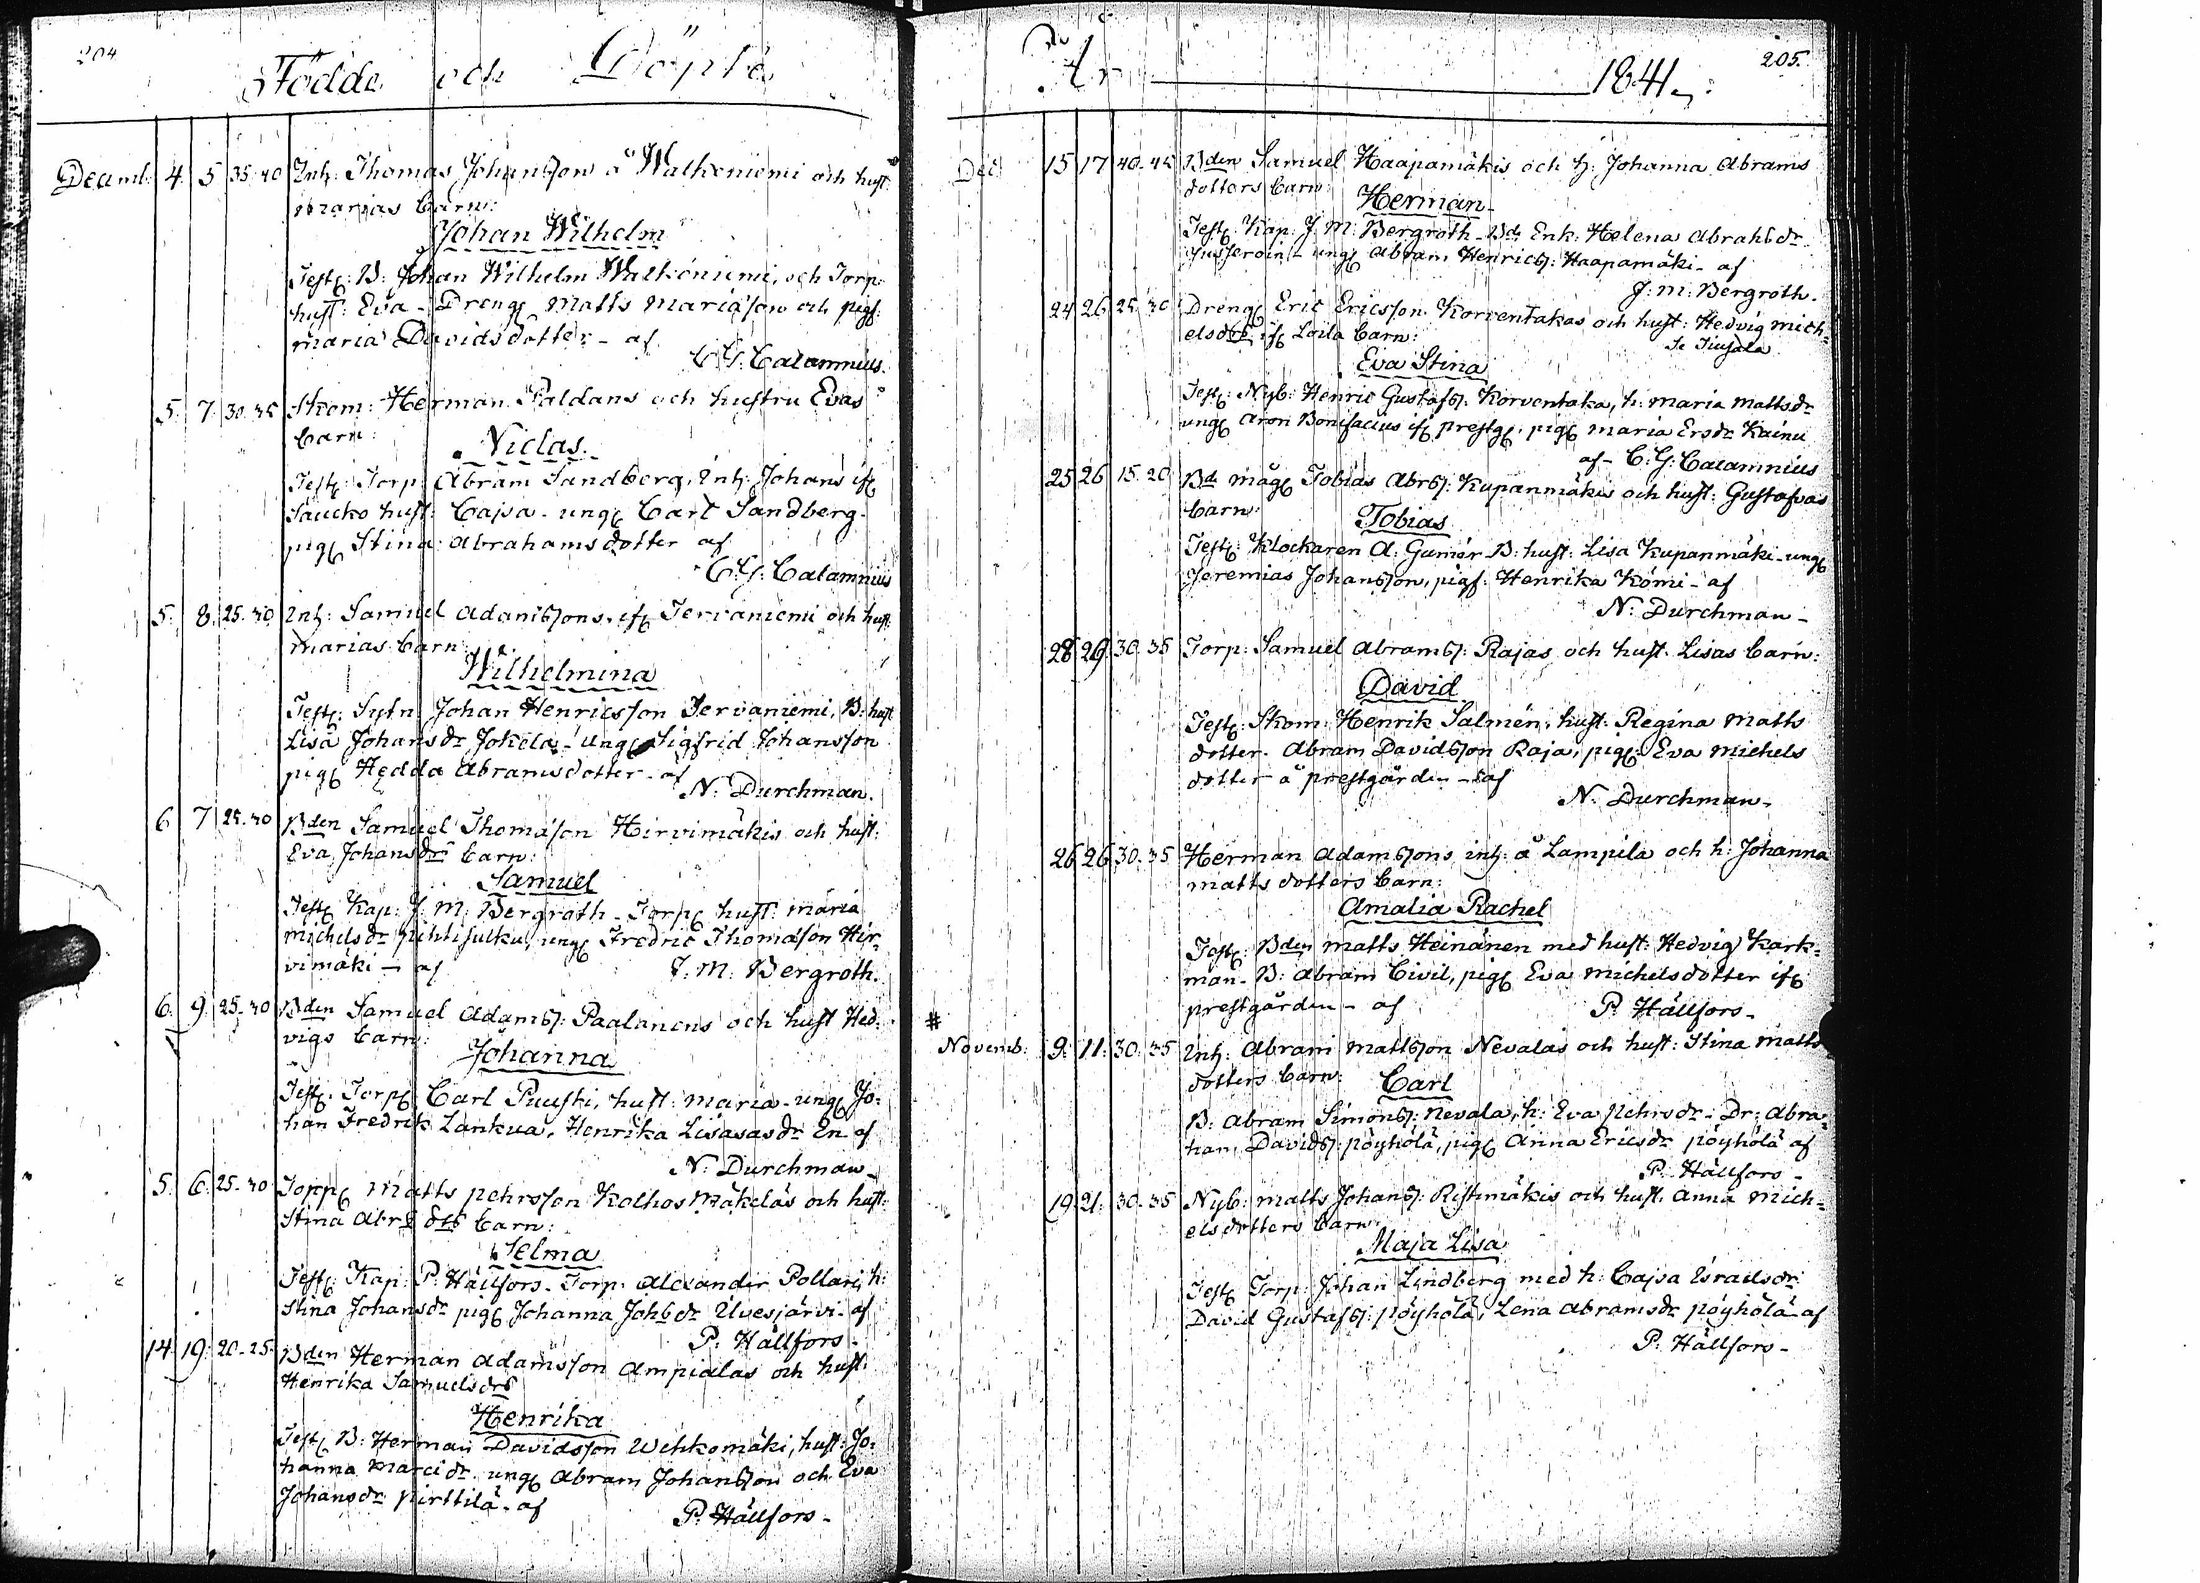 204
Födde och Döpte
Decemb: 4. 5 35-40 Inh: Thomas Johansson å Walkeniemi och hust:
Marias barn:
Johan Wilhelm
Test: B: Johan Wilhelm Walkeniemi, och Torp:
hust: Eva - Dreng Matts Mariæson och pig:
Maria Davidsdotter - af
C. G: Calamnius.
5. 7. 30-35 Skom: Herman Paldans och hustru Evas
barn:
Niclas.
Test: Torp: Abram Sandberg, Inh: Johans if
Saucko hust: Cajsa - ung Carl Sandberg -
pig Stina Abrahamsdotter af
C. G: Calamnius
5. 8. 25-30 Inh: Samuel Adamssons, if Tervaniemi och hust:
Marias barn:
Wilhelmina
Test: Sytn: Johan Henricsson Tervaniemi, B: hust
Lisa Johansdr Jokela - ung Sigfrid Johansson
pig Hedda Abramsdotter - af
N: Durchman.
6 7 25-30 Bden Samuel Thomason Hirvimäkis och hust:
Eva Johansdrs barn:
Samuel
Test Kap: J: M: Bergroth - Torp hust: Maria
Michelsdr Pihtisulku, ung Fredric Thomason Hir-
vimäki - af J. M: Bergroth.
6. 9. 25-30 Bden Samuel Adamss: Paalanens och hust Hed-
vigs barn:
Johanna
Test: Torp Carl Puuski, hust: Maria - ung Jo-
han Fredrik Lankua, Henrika Lisasasdr En af
N: Durchman -
5. 6. 25-30 Torp Matts Pehrsson Kalhos Mäkeläs och hust:
Stina Abrs drs barn:
Selma
Test: Kap: P: Hällfors - Torp: Alexander Pollari, h:
Stina Johansdr pig Johanna Johsdr Ulvesjärvi - af
P: Hällfors -
14. 19. 20-25. Bden Herman Adamsson Ampialas och hust:
Henrika Samuelsdrs
Henrika
Test B: Herman Davidsson Wehkomäki, hust: Jo-
hanna Marcidr. ung Abram Johansson och Eva
Johansdr Pirttilä - af
P. Hällfors -
År 1841.
205.
Dec: 15 17 40-45 Bden Samuel Haapamäkis och h: Johanna Abrams
dotters barn:
Herman -
Test Kap: J. M: Bergroth - Bds Enk: Helena Abrahsdr
- ung Abram Henricss: Haapamäki - af
J: M: Bergroth.
24 26 25-30 Dreng Eric Ericsson Korventakas och hust: Hedvig Mich-
elsdrs, if Loila barn:
Eva Stina
Test: Nyb: Henric Gustafss: Korventaka, h: Maria Mattsdr
ung Aron Bonifacius if prestg: pig Maria Ersdr Kainu
af - C: G: Calamnius
25 26 15-20 Bds Måg Tobias Abrss: Kupanmäkis och hust: Gustafvas
barn:
Tobias
Test: Klockaren A: Gumér B: hust: Lisa Kupanmäki - ung
Jeremias Johansson, pig: Henrika Kömi - af
N: Durchman -
28 29 30-35 Torp: Samuel Abramss: Rajas och hust. Lisas barn:
David
Test: Skom: Henrik Salmén, hust: Regina Matts
dotter - Abram Davidsson Raja, pig: Eva Michels
dotter å prestgården - af
N: Durchman -
26 26 30-35 Herman Adamssons inh: å Lampila och h: Johanna
Matts dotters barn:
Amalia Rachel
Test: Bden Matts Heinänen med hust: Hedvig Kark-
man - B: Abram Civil, pig Eva Michelsdotter if
prestgården - af P. Hällfors -
#
Novemb: 9. 11. 30-35 Inh: Abram Mattsson Nevalas och hust: Stina Matts
dotters barn:
Carl
B: Abram Simonss: Nevala, h: Eva Pehrsdr - Dr: Abra-
ham Davidss: Pöyhölä, pig Anna Ericsdr Pöyhölä af
P. Hällfors -
19. 21. 30-35 Nyb: Matts Johanss: Ristimäkis och hust. Anna Mich-
elsdotters barn:
Maja Lisa
Test Torp: Johan Lindberg med h: Cajsa Esraelsdr:
David Gustafss: Pöyhölä, Lena Abramsdr Pöyhölä - af
P. Hällfors -